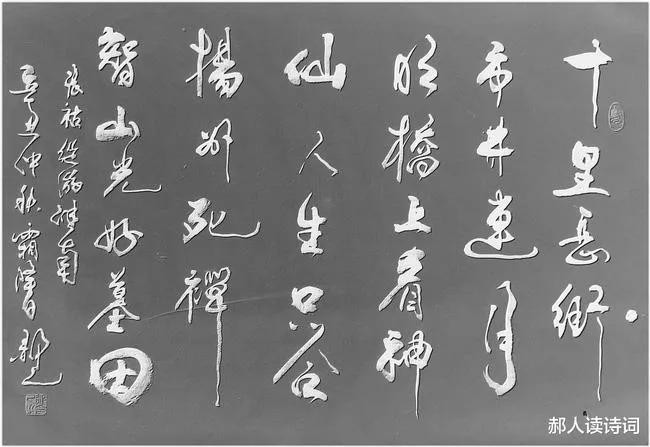 十里長街
市井連月
明橋上看神
仙人生只合
揚州死禪
智山光好墓田
張祜縱游淮南
辛丑仲秋
郝人读诗词